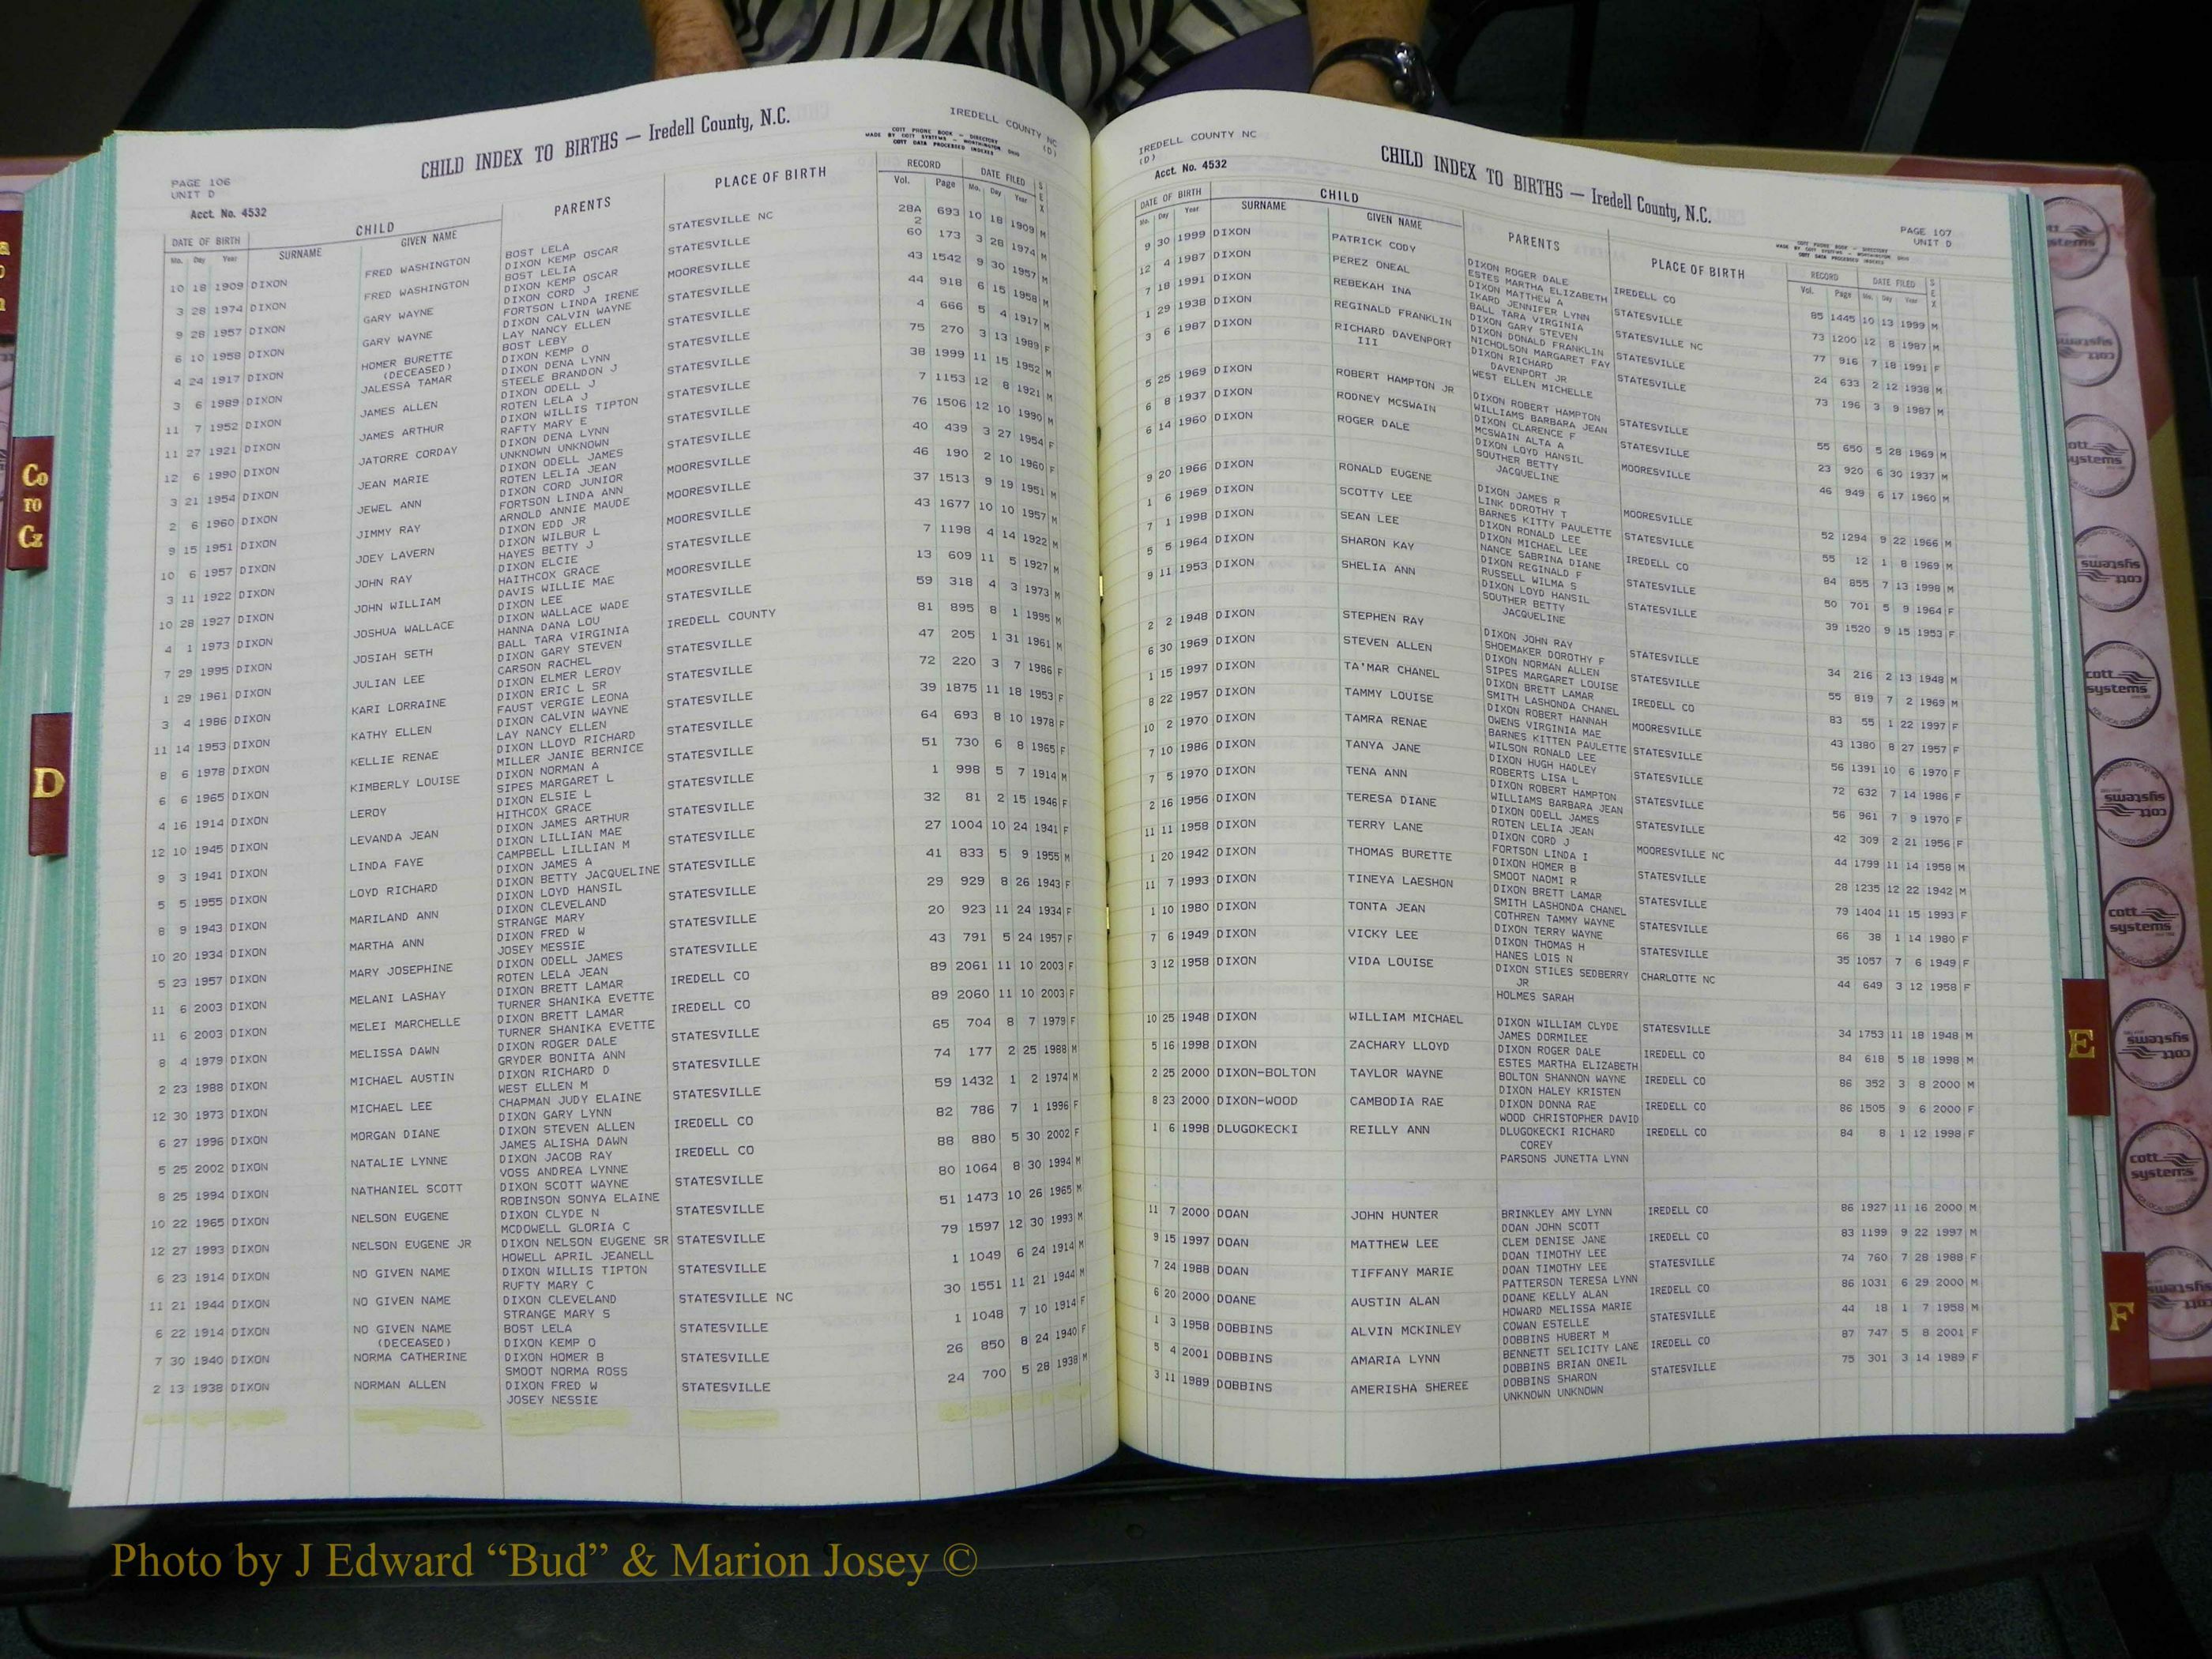 IREDELL COUNTY NC
(D)
COTT PHONE BOOK - DIRECTORY
MADE BY COTT SYSTEMS - WORTHINGTON, OHIO
COTT DATA PROCESSED INDEXES
CHILD INDEX TO BIRTHS — Iredell County, N.C.
PAGE 106
UNIT D
Acct. No. 4532
DATE OF BIRTH CHILD PARENTS PLACE OF BIRTH RECORD DATE FILED SEX
Mo. Day Year SURNAME GIVEN NAME Vol. Page Mo. Day Year
10 18 1909 DIXON FRED WASHINGTON BOST LELA STATESVILLE NC 28A 693 10 18 1909 M
DIXON KEMP OSCAR 2
3 28 1974 DIXON FRED WASHINGTON BOST LELIA STATESVILLE 60 173 3 28 1974 M
DIXON KEMP OSCAR
9 28 1957 DIXON GARY WAYNE DIXON CORD J MOORESVILLE 43 1542 9 30 1957 M
FORTSON LINDA IRENE
6 10 1958 DIXON GARY WAYNE DIXON CALVIN WAYNE STATESVILLE 44 918 6 15 1958 M
LAY NANCY ELLEN
4 24 1917 DIXON HOMER BURETTE BOST LEBY STATESVILLE 4 666 5 4 1917 M
(DECEASED) DIXON KEMP O
3 6 1989 DIXON JALESSA TAMAR DIXON DENA LYNN STATESVILLE 75 270 3 13 1989 F
STEELE BRANDON J
11 7 1952 DIXON JAMES ALLEN DIXON ODELL J STATESVILLE 38 1999 11 15 1952 M
ROTEN LELA J
11 27 1921 DIXON JAMES ARTHUR DIXON WILLIS TIPTON STATESVILLE 7 1153 12 8 1921 M
RAFTY MARY E
12 6 1990 DIXON JATORRE CORDAY DIXON DENA LYNN STATESVILLE 76 1506 12 10 1990 M
UNKNOWN UNKNOWN
3 21 1954 DIXON JEAN MARIE DIXON ODELL JAMES STATESVILLE 40 439 3 27 1954 F
ROTEN LELIA JEAN
2 6 1960 DIXON JEWEL ANN DIXON CORD JUNIOR MOORESVILLE 46 190 2 10 1960 F
FORTSON LINDA ANN
9 15 1951 DIXON JIMMY RAY ARNOLD ANNIE MAUDE MOORESVILLE 37 1513 9 19 1951 M
DIXON EDD JR
10 6 1957 DIXON JOEY LAVERN DIXON WILBUR L MOORESVILLE 43 1677 10 10 1957 M
HAYES BETTY J
3 11 1922 DIXON JOHN RAY DIXON ELCIE STATESVILLE 7 1198 4 14 1922 M
HAITHCOX GRACE
10 28 1927 DIXON JOHN WILLIAM DAVIS WILLIE MAE MOORESVILLE 13 609 11 5 1927 M
DIXON LEE
4 1 1973 DIXON JOSHUA WALLACE DIXON WALLACE WADE STATESVILLE 59 318 4 3 1973 M
HANNA DANA LOU
7 29 1995 DIXON JOSIAH SETH BALL TARA VIRGINIA IREDELL COUNTY 81 895 8 1 1995 M
DIXON GARY STEVEN
1 29 1961 DIXON JULIAN LEE CARSON RACHEL STATESVILLE 47 205 1 31 1961 M
DIXON ELMER LEROY
3 4 1986 DIXON KARI LORRAINE DIXON ERIC L SR STATESVILLE 72 220 3 7 1986 F
FAUST VERGIE LEONA
11 14 1953 DIXON KATHY ELLEN DIXON CALVIN WAYNE STATESVILLE 39 1875 11 18 1953 F
LAY NANCY ELLEN
8 6 1978 DIXON KELLIE RENAE DIXON LLOYD RICHARD STATESVILLE 64 693 8 10 1978 F
MILLER JANIE BERNICE
6 6 1965 DIXON KIMBERLY LOUISE DIXON NORMAN A STATESVILLE 51 730 6 8 1965 F
SIPES MARGARET L
4 16 1914 DIXON LEROY DIXON ELSIE L STATESVILLE 1 998 5 7 1914 M
HITHCOX GRACE
12 10 1945 DIXON LEVANDA JEAN DIXON JAMES ARTHUR STATESVILLE 32 81 2 15 1946 F
DIXON LILLIAN MAE
9 3 1941 DIXON LINDA FAYE CAMPBELL LILLIAN M STATESVILLE 27 1004 10 24 1941 F
DIXON JAMES A
5 5 1955 DIXON LOYD RICHARD DIXON BETTY JACQUELINE STATESVILLE 41 833 5 9 1955 M
DIXON LOYD HANSIL
8 9 1943 DIXON MARILAND ANN DIXON CLEVELAND STATESVILLE 29 929 8 26 1943 F
STRANGE MARY
10 20 1934 DIXON MARTHA ANN DIXON FRED W STATESVILLE 20 923 11 24 1934 F
JOSEY MESSIE
5 23 1957 DIXON MARY JOSEPHINE DIXON ODELL JAMES STATESVILLE 43 791 5 24 1957 F
ROTEN LELA JEAN
11 6 2003 DIXON MELANI LASHAY DIXON BRETT LAMAR IREDELL CO 89 2061 11 10 2003 F
TURNER SHANIKA EVETTE
11 6 2003 DIXON MELEI MARCHELLE DIXON BRETT LAMAR IREDELL CO 89 2060 11 10 2003 F
TURNER SHANIKA EVETTE
8 4 1979 DIXON MELISSA DAWN DIXON ROGER DALE STATESVILLE 65 704 8 7 1979 F
GRYDER BONITA ANN
2 23 1988 DIXON MICHAEL AUSTIN DIXON RICHARD D STATESVILLE 74 177 2 25 1988 M
WEST ELLEN M
12 30 1973 DIXON MICHAEL LEE CHAPMAN JUDY ELAINE STATESVILLE 59 1432 1 2 1974 M
DIXON GARY LYNN
6 27 1996 DIXON MORGAN DIANE DIXON STEVEN ALLEN IREDELL CO 82 786 7 1 1996 F
JAMES ALISHA DAWN
5 25 2002 DIXON NATALIE LYNNE DIXON JACOB RAY IREDELL CO 88 880 5 30 2002 F
VOSS ANDREA LYNNE
8 25 1994 DIXON NATHANIEL SCOTT DIXON SCOTT WAYNE STATESVILLE 80 1064 8 30 1994 M
ROBINSON SONYA ELAINE
10 22 1965 DIXON NELSON EUGENE DIXON CLYDE N STATESVILLE 51 1473 10 26 1965 M
MCDOWELL GLORIA C
12 27 1993 DIXON NELSON EUGENE JR DIXON NELSON EUGENE SR STATESVILLE 79 1597 12 30 1993 M
HOWELL APRIL JEANELL
6 23 1914 DIXON NO GIVEN NAME DIXON WILLIS TIPTON STATESVILLE 1 1049 6 24 1914 M
RUFTY MARY C
11 21 1944 DIXON NO GIVEN NAME DIXON CLEVELAND STATESVILLE NC 30 1551 11 21 1944 M
STRANGE MARY S
6 22 1914 DIXON NO GIVEN NAME BOST LELA STATESVILLE 1 1048 7 10 1914 F
(DECEASED) DIXON KEMP O
7 30 1940 DIXON NORMA CATHERINE DIXON HOMER B STATESVILLE 26 850 8 24 1940 F
SMOOT NORMA ROSS
2 13 1938 DIXON NORMAN ALLEN DIXON FRED W STATESVILLE 24 700 5 28 1938 M
JOSEY NESSIE
IREDELL COUNTY NC
(D)
Acct. No. 4532
CHILD INDEX TO BIRTHS — Iredell County, N.C.
PAGE 107
UNIT D
COTT PHONE BOOK - DIRECTORY
MADE BY COTT SYSTEMS - WORTHINGTON, OHIO
COTT DATA PROCESSED INDEXES
DATE OF BIRTH CHILD PARENTS PLACE OF BIRTH RECORD DATE FILED SEX
Mo. Day Year SURNAME GIVEN NAME Vol. Page Mo. Day Year
9 30 1999 DIXON PATRICK CODY DIXON ROGER DALE IREDELL CO 85 1445 10 13 1999 M
ESTES MARTHA ELIZABETH
12 4 1987 DIXON PEREZ ONEAL DIXON MATTHEW A STATESVILLE 73 1200 12 8 1987 M
IKARD JENNIFER LYNN
7 18 1991 DIXON REBEKAH INA BALL TARA VIRGINIA STATESVILLE NC 77 916 7 18 1991 F
DIXON GARY STEVEN
1 29 1938 DIXON REGINALD FRANKLIN DIXON DONALD FRANKLIN STATESVILLE 24 633 2 12 1938 M
NICHOLSON MARGARET FAY
3 6 1987 DIXON RICHARD DAVENPORT DIXON RICHARD STATESVILLE 73 196 3 9 1987 M
III DAVENPORT JR
WEST ELLEN MICHELLE
5 25 1969 DIXON ROBERT HAMPTON JR DIXON ROBERT HAMPTON STATESVILLE 55 650 5 28 1969 M
WILLIAMS BARBARA JEAN
6 8 1937 DIXON RODNEY MCSWAIN DIXON CLARENCE F STATESVILLE 23 920 6 30 1937 M
MCSWAIN ALTA A
6 14 1960 DIXON ROGER DALE DIXON LOYD HANSIL MOORESVILLE 46 949 6 17 1960 M
SOUTHER BETTY
JACQUELINE
9 20 1966 DIXON RONALD EUGENE DIXON JAMES R MOORESVILLE 52 1294 9 22 1966 M
LINK DOROTHY T
1 6 1969 DIXON SCOTTY LEE BARNES KITTY PAULETTE STATESVILLE 55 12 1 8 1969 M
DIXON RONALD LEE
7 1 1998 DIXON SEAN LEE DIXON MICHAEL LEE IREDELL CO 84 855 7 13 1998 M
NANCE SABRINA DIANE
5 5 1964 DIXON SHARON KAY DIXON REGINALD F STATESVILLE 50 701 5 9 1964 F
RUSSELL WILMA S
9 11 1953 DIXON SHELIA ANN DIXON LOYD HANSIL STATESVILLE 39 1520 9 15 1953 F
SOUTHER BETTY
JACQUELINE
2 2 1948 DIXON STEPHEN RAY DIXON JOHN RAY STATESVILLE 34 216 2 13 1948 M
SHOEMAKER DOROTHY F
6 30 1969 DIXON STEVEN ALLEN DIXON NORMAN ALLEN STATESVILLE 55 819 7 2 1969 M
SIPES MARGARET LOUISE
1 15 1997 DIXON TA'MAR CHANEL DIXON BRETT LAMAR IREDELL CO 83 55 1 22 1997 F
SMITH LASHONDA CHANEL
8 22 1957 DIXON TAMMY LOUISE DIXON ROBERT HANNAH MOORESVILLE 43 1380 8 27 1957 F
OWENS VIRGINIA MAE
10 2 1970 DIXON TAMRA RENAE BARNES KITTEN PAULETTE STATESVILLE 56 1391 10 6 1970 F
WILSON RONALD LEE
7 10 1986 DIXON TANYA JANE DIXON HUGH HADLEY STATESVILLE 72 632 7 14 1986 F
ROBERTS LISA L
7 5 1970 DIXON TENA ANN DIXON ROBERT HAMPTON STATESVILLE 56 961 7 9 1970 F
WILLIAMS BARBARA JEAN
2 16 1956 DIXON TERESA DIANE DIXON ODELL JAMES STATESVILLE 42 309 2 21 1956 F
ROTEN LELIA JEAN
11 11 1958 DIXON TERRY LANE DIXON CORD J MOORESVILLE NC 44 1799 11 14 1958 M
FORTSON LINDA I
1 20 1942 DIXON THOMAS BURETTE DIXON HOMER B STATESVILLE 28 1235 12 22 1942 M
SMOOT NAOMI R
11 7 1993 DIXON TINEYA LAESHON DIXON BRETT LAMAR STATESVILLE 79 1404 11 15 1993 F
SMITH LASHONDA CHANEL
1 10 1980 DIXON TONTA JEAN COTHREN TAMMY WAYNE STATESVILLE 66 38 1 14 1980 F
DIXON TERRY WAYNE
7 6 1949 DIXON VICKY LEE DIXON THOMAS H STATESVILLE 35 1057 7 6 1949 F
HANES LOIS N
3 12 1958 DIXON VIDA LOUISE DIXON STILES SEDBERRY CHARLOTTE NC 44 649 3 12 1958 F
JR
HOLMES SARAH
10 25 1948 DIXON WILLIAM MICHAEL DIXON WILLIAM CLYDE STATESVILLE 34 1753 11 18 1948 M
JAMES DORMILEE
5 16 1998 DIXON ZACHARY LLOYD DIXON ROGER DALE IREDELL CO 84 618 5 18 1998 M
ESTES MARTHA ELIZABETH
2 25 2000 DIXON-BOLTON TAYLOR WAYNE BOLTON SHANNON WAYNE IREDELL CO 86 352 3 8 2000 M
DIXON HALEY KRISTEN
8 23 2000 DIXON-WOOD CAMBODIA RAE DIXON DONNA RAE IREDELL CO 86 1505 9 6 2000 F
WOOD CHRISTOPHER DAVID
1 6 1998 DLUGOKECKI REILLY ANN DLUGOKECKI RICHARD IREDELL CO 84 8 1 12 1998 F
COREY
PARSONS JUNETTA LYNN
11 7 2000 DOAN JOHN HUNTER BRINKLEY AMY LYNN IREDELL CO 86 1927 11 16 2000 M
DOAN JOHN SCOTT
9 15 1997 DOAN MATTHEW LEE CLEM DENISE JANE IREDELL CO 83 1199 9 22 1997 M
DOAN TIMOTHY LEE
7 24 1988 DOAN TIFFANY MARIE DOAN TIMOTHY LEE STATESVILLE 74 760 7 28 1988 F
PATTERSON TERESA LYNN
6 20 2000 DOANE AUSTIN ALAN DOANE KELLY ALAN IREDELL CO 86 1031 6 29 2000 M
HOWARD MELISSA MARIE
1 3 1958 DOBBINS ALVIN MCKINLEY COWAN ESTELLE STATESVILLE 44 18 1 7 1958 M
DOBBINS HUBERT M
5 4 2001 DOBBINS AMARIA LYNN BENNETT SELICITY LANE IREDELL CO 87 747 5 8 2001 F
DOBBINS BRIAN ONEIL
3 11 1989 DOBBINS AMERISHA SHEREE DOBBINS SHARON STATESVILLE 75 301 3 14 1989 F
UNKNOWN UNKNOWN
Co
TO
Cz
D
E
F
cott
systems
Photo by J Edward “Bud” & Marion Josey ©